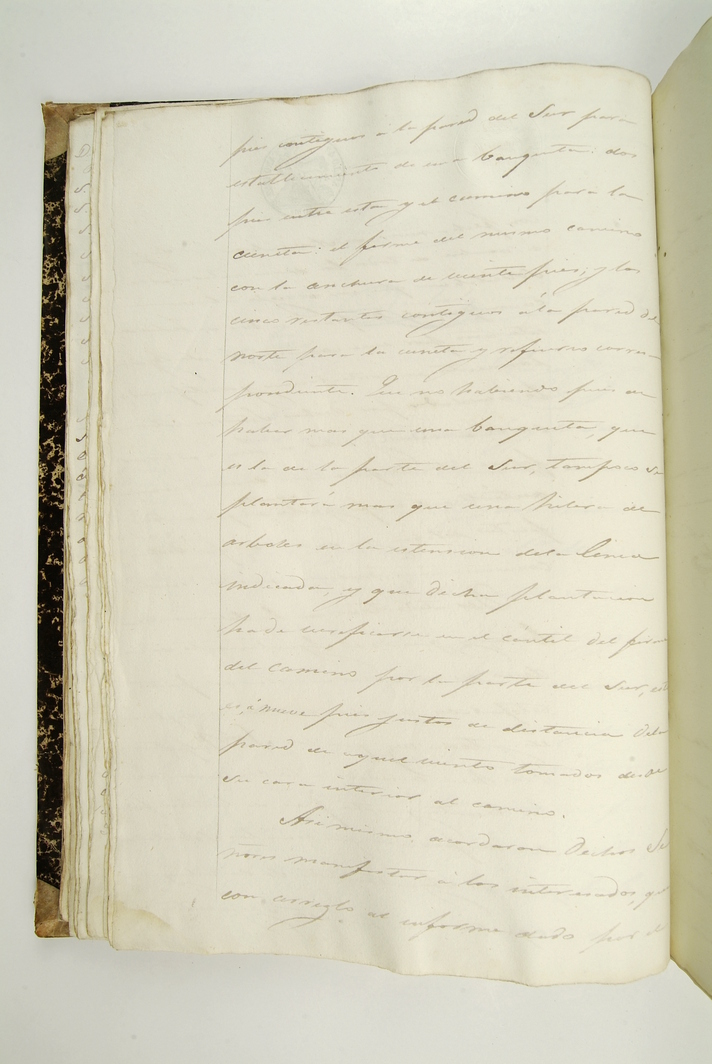 pies contiguos á la pared del Sur para
establecimiento de una banqueta: dos
pies entre esta y el camino para la
cuneta: el firme del mismo camino
con la anchura de veinte pies; y los
cinco restantes contiguos á la pared del
norte para la cuneta y refuerzo corres-
pondiente. Que no habiendo pues de
haber mas que una banqueta, que
es la de la parte del Sur, tampoco se
plantará mas que una hilera de
arboles en la estension dela linea
indicada, y que dicha plantacion
ha de verificarse en el cantil del firme
del camino por la parte del Sur, esto
es, á nueve pies justos de distancia dela
pared de aquel viento tomados desde
su cara interior al camino.
Asi mismo acordaron dichos Se
ñores manifestar á los interesados, que
con arreglo al informe dado por el